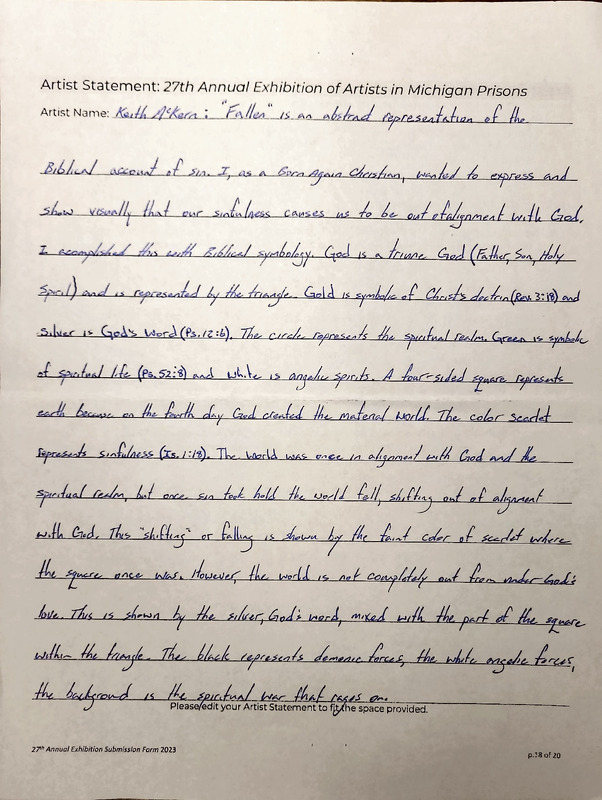 Artist Statement: 27th Annual Exhibition of Artists in Michigan Prisons
Artist Name: Keith AcKern: "Fallen" is an abstract representation of the
Biblical account of sin. I, as a Born Again Christian, wanted to express and
show visually that our sinfulness causes us to be out of alignment with God.
I acomplished this with Biblical symbology. God is a triune God (Father, Son, Holy
Spirit) and is represented by the triangle. Gold is symbolic of Christ's doctrin (Rev. 3:18) and
silver is God's Word (Ps. 12:6). The circle represents the spiritual realm. Green is symbolic
of spiritual life (Ps. 52:8) and white is angelic spirits. A four-sided square represents
earth because on the fourth day God created the material world. The color scarlet
represents sinfulness (Is. 1:18). The world was once in alignment with God and the
spiritual realm, but once sin took hold the world fell, shifting out of alignment
with God. This "shifting" or falling is shown by the faint color of scarlet where
the square once was. However, the world is not completly out from under God's
love. This is shown by the silver, God's word, mixed with the part of the square
within the triangle. The black represents demonic forces, the white angelic forces,
the background is the spiritual war that rages on.
Please/edit your Artist Statement to fit the space provided.
27th Annual Exhibition Submission Form 2023
p.18 of 20